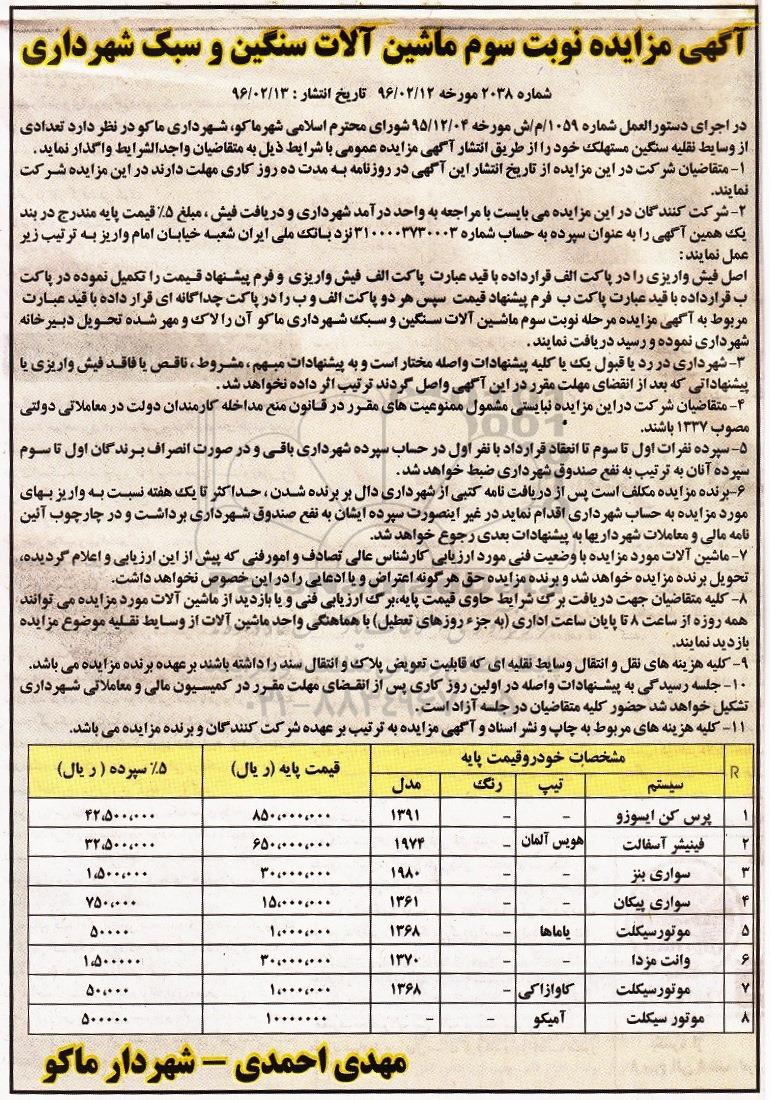 آگهی مزایده نوبت سوم ماشین آلات سنگین و سبک شهرداری
شماره ۲۰۳۸ مورخه ۹۶/۰۲/۱۲ تاریخ انتشار : ۹۶/۰۲/۱۳
در اجرای دستورالعمل شماره ۱۰۵۹/م/ش مورخه ۹۵/۱۲/۰۴ شورای محترم اسلامی شهرماکو، شهرداری ماکو در نظر دارد تعدادی
از وسایط نقلیه سنگین مستهلک خود را از طریق انتشار آگهی مزایده عمومی با شرایط ذیل به متقاضیان واجدالشرایط واگذار نماید .
۱- متقاضیان شرکت در این مزایده از تاریخ انتشار این آگهی در روزنامه به مدت ده روز کاری مهلت دارند در این مزایده شرکت
نمایند.
۲- شرکت کنندگان در این مزایده می بایست با مراجعه به واحد درآمد شهرداری و دریافت فیش ، مبلغ ۵٪ قیمت پایه مندرج در بند
یک همین آگهی را به عنوان سپرده به حساب شماره ۳۱۰۰۰۰۳۷۳۰۰۰۳ نزد بانک ملی ایران شعبه خیابان امام واریز به ترتیب زیر
عمل نمایند :
اصل فیش واریزی را در پاکت الف قرارداده با قید عبارت پاکت الف فیش واریزی و فرم پیشنهاد قیمت را تکمیل نموده در پاکت
ب قرارداده با قید عبارت پاکت ب فرم پیشنهاد قیمت سپس هر دو پاکت الف و ب را در پاکت جداگانه ای قرار داده با قید عبارت
مربوط به آگهی مزایده مرحله نوبت سوم ماشین آلات سنگین و سبک شهرداری ماکو آن را لاک و مهر شده تحویل دبیرخانه
شهرداری نموده و رسید دریافت نمایند .
۳- شهرداری در رد یا قبول یک یا کلیه پیشنهادات واصله مختار است و به پیشنهادات مبهم ، مشروط ، ناقص یا فاقد فیش واریزی یا
پیشنهاداتی که بعد از انقضای مهلت مقرر در این آگهی واصل گردند ترتیب اثر داده نخواهد شد .
۴- متقاضیان شرکت دراین مزایده نبایستی مشمول ممنوعیت های مقرر در قانون منع مداخله کارمندان دولت در معاملاتی دولتی
مصوب ۱۳۳۷ باشند.
۵- سپرده نفرات اول تا سوم تا انعقاد قرارداد با نفر اول در حساب سپرده شهرداری باقی و در صورت انصراف برندگان اول تا سوم
سپرده آنان به ترتیب به نفع صندوق شهرداری ضبط خواهد شد .
۶-برنده مزایده مکلف است پس از دریافت نامه کتبی از شهرداری دال بر برنده شدن ، حداکثر تا یک هفته نسبت به واریز بهای
مورد مزایده به حساب شهرداری اقدام نماید در غیر اینصورت سپرده ایشان به نفع صندوق شهرداری برداشت و در چارچوب آئین
نامه مالی و معاملات شهرداریها به پیشنهادات بعدی رجوع خواهد شد.
۷- ماشین آلات مورد مزایده با وضعیت فنی مورد ارزیابی کارشناس عالی تصادف و امورفنی که پیش از این ارزیابی و اعلام گردیده،
تحویل برنده مزایده خواهد شد و برنده مزایده حق هر گونه اعتراض و یا ادعایی را در این خصوص نخواهد داشت.
۸- کلیه متقاضیان جهت دریافت برگ شرایط حاوی قیمت پایه،برگ ارزیابی فنی و یا بازدید از ماشین آلات مورد مزایده می توانند
همه روزه از ساعت ۸ تا پایان ساعت اداری (به جزء روزهای تعطیل) با هماهنگی واحد ماشین آلات از وسایط نقلیه موضوع مزایده
بازدید نمایند.
۹- کلیه هزینه های نقل و انتقال وسایط نقلیه ای که قابلیت تعویض پلاک و انتقال سند را داشته باشند برعهده برنده مزایده می باشد.
۱۰- جلسه رسیدگی به پیشنهادات واصله در اولین روز کاری پس از انقضای مهلت مقرر در کمیسیون مالی و معاملاتی شهرداری
تشکیل خواهد شد حضور کلیه متقاضیان در جلسه آزاد است .
۱۱- کلیه هزینه های مربوط به چاپ و نشر اسناد و آگهی مزایده به ترتیب بر عهده شرکت کنندگان و برنده مزایده می باشد.
R مشخصات خودروقیمت پایه قیمت پایه (ر یال) ۵٪ سپرده ( ر یال)
سیستم تیپ رنگ مدل
۱ پرس کن ایسوزو - - ۱۳۹۱ ۸۵۰،۰۰۰،۰۰۰ ۴۲،۵۰۰،۰۰۰
۲ فینیشر آسفالت هویس آلمان - ۱۹۷۴ ۶۵۰،۰۰۰،۰۰۰ ۳۲،۵۰۰،۰۰۰
۳ سواری بنز - - ۱۹۸۰ ۳۰،۰۰۰،۰۰۰ ۱،۵۰۰،۰۰۰
۴ سواری پیکان - - ۱۳۶۱ ۱۵،۰۰۰،۰۰۰ ۷۵۰،۰۰۰
۵ موتورسیکلت یاماها - ۱۳۶۸ ۱،۰۰۰،۰۰۰ ۵۰۰۰۰
۶ وانت مزدا - - ۱۳۷۰ ۳۰،۰۰۰،۰۰۰ ۱،۵۰۰۰۰۰
۷ موتورسیکلت کاوازاکی - ۱۳۶۸ ۱،۰۰۰،۰۰۰ ۵۰،۰۰۰
۸ موتور سیکلت آمیکو - - ۱۰۰۰۰۰۰۰ ۵۰۰۰۰۰
مهدی احمدی – شهردار ماکو